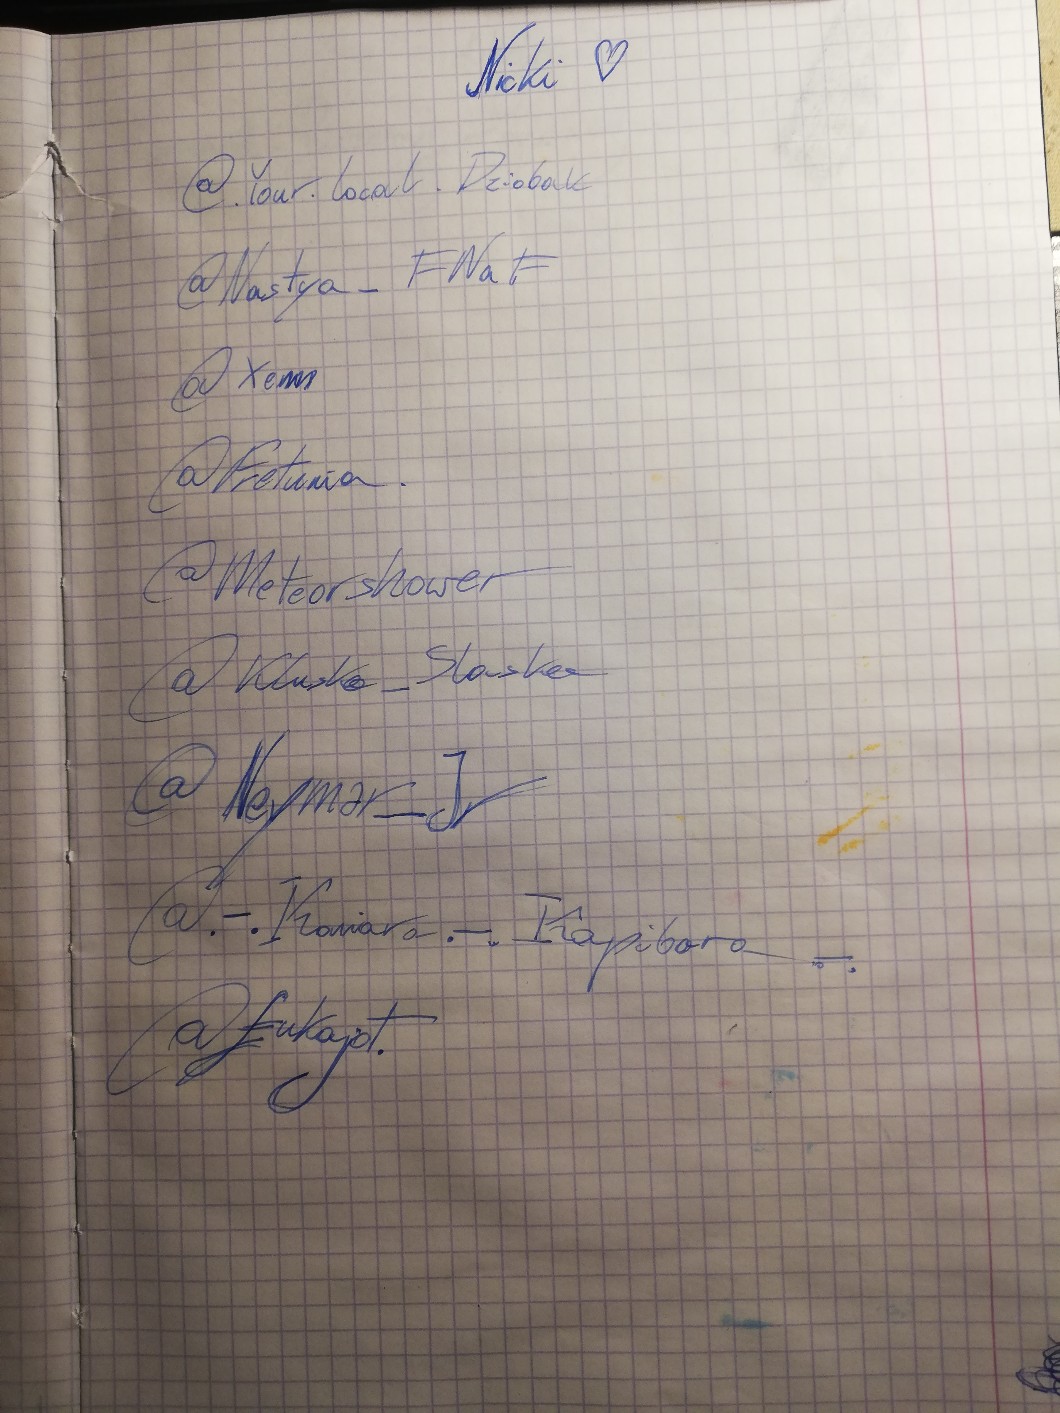 Nicki ♡
@.Your.local.Dziobak
@Nastya_FNaF
@Xemm
@Fretunia.
@Meteorshower
@Kluska_Slaska
@Neymar_Jr
@.-.Kawiara.-.Kapibara_-.
@Łukajot.